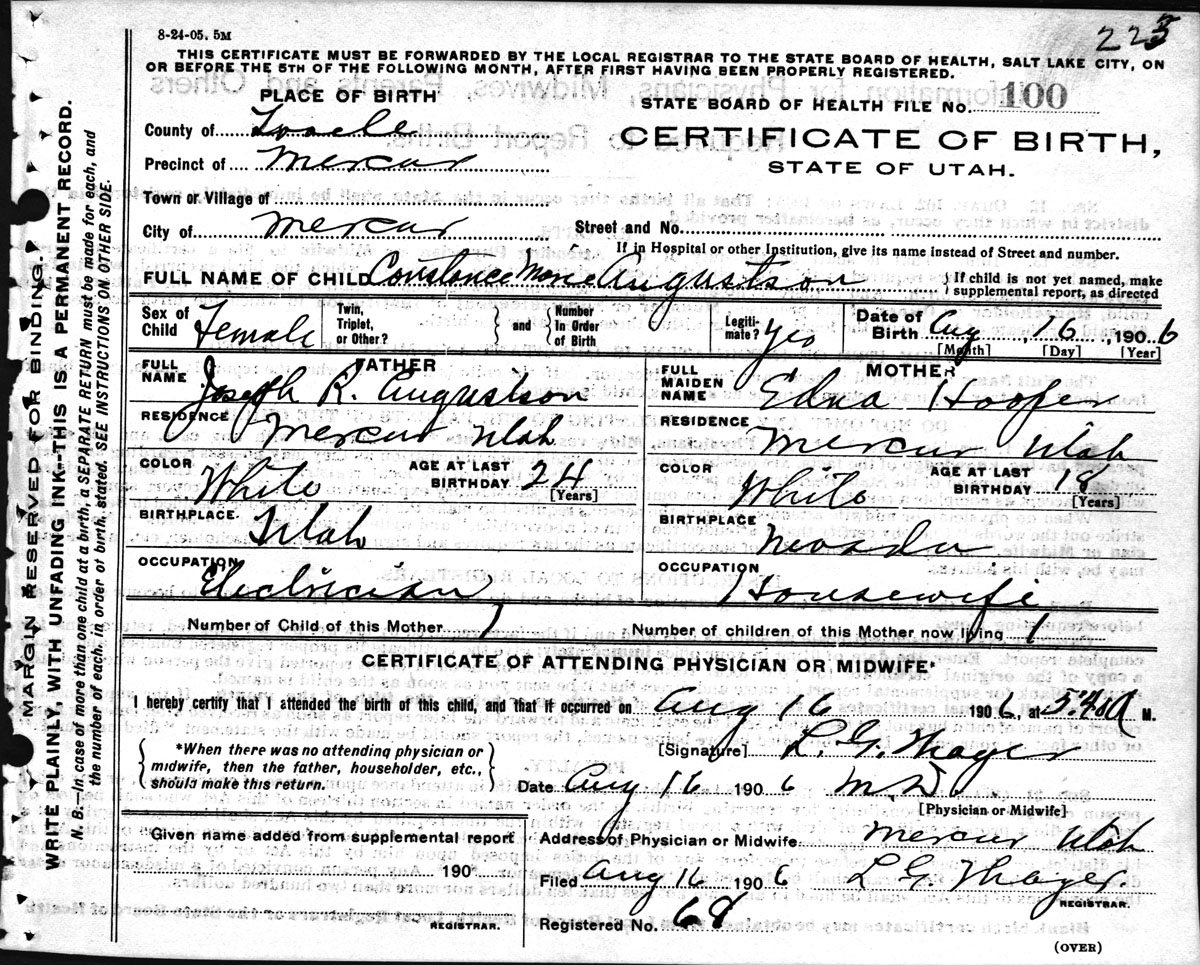 8-24-05. 5M
225
THIS CERTIFICATE MUST BE FORWARDED BY THE LOCAL REGISTRAR TO THE STATE BOARD OF HEALTH, SALT LAKE CITY, ON
OR BEFORE THE 5TH OF THE FOLLOWING MONTH, AFTER FIRST HAVING BEEN PROPERLY REGISTERED.
PLACE OF BIRTH
STATE BOARD OF HEALTH FILE No. 100
County of Tooele
CERTIFICATE OF BIRTH,
Precinct of Mercur
STATE OF UTAH.
Town or Village of
City of Mercur Street and No.
If in Hospital or other Institution, give its name instead of Street and number.
FULL NAME OF CHILD Constance Augustson } If child is not yet named, make supplemental report, as directed
Sex of Child Female Twin, Triplet, or Other? } and { Number In Order of Birth Legiti-mate? Yes Date of Birth Aug, 16, 1906
[Month] [Day] [Year]
FATHER
FULL NAME Joseph R. Augustson
RESIDENCE Mercur Utah
COLOR White AGE AT LAST BIRTHDAY 24 [Years]
BIRTHPLACE Utah
OCCUPATION Electrician
MOTHER
FULL MAIDEN NAME Edna Hooper
RESIDENCE Mercur Utah
COLOR White AGE AT LAST BIRTHDAY 18 [Years]
BIRTHPLACE Nevada
OCCUPATION Housewife
Number of Child of this Mother 1 Number of children of this Mother now living 1
CERTIFICATE OF ATTENDING PHYSICIAN OR MIDWIFE*
I hereby certify that I attended the birth of this child, and that it occurred on Aug 16 1906, at 5:40 A M.
{ *When there was no attending physician or midwife, then the father, householder, etc., should make this return. }
[Signature] L. G. Thayer
Date Aug 16 1906 M.D
[Physician or Midwife]
Given name added from supplemental report
190
REGISTRAR.
Address of Physician or Midwife Mercur Utah
Filed Aug 16 1906 L G Thayer.
REGISTRAR.
Registered No. 68
(OVER)
MARGIN RESERVED FOR BINDING.
WRITE PLAINLY, WITH UNFADING INK—THIS IS A PERMANENT RECORD.
N. B.—In case of more than one child at a birth, a SEPARATE RETURN must be made for each, and
the number of each, in order of birth, stated. SEE INSTRUCTIONS ON OTHER SIDE.